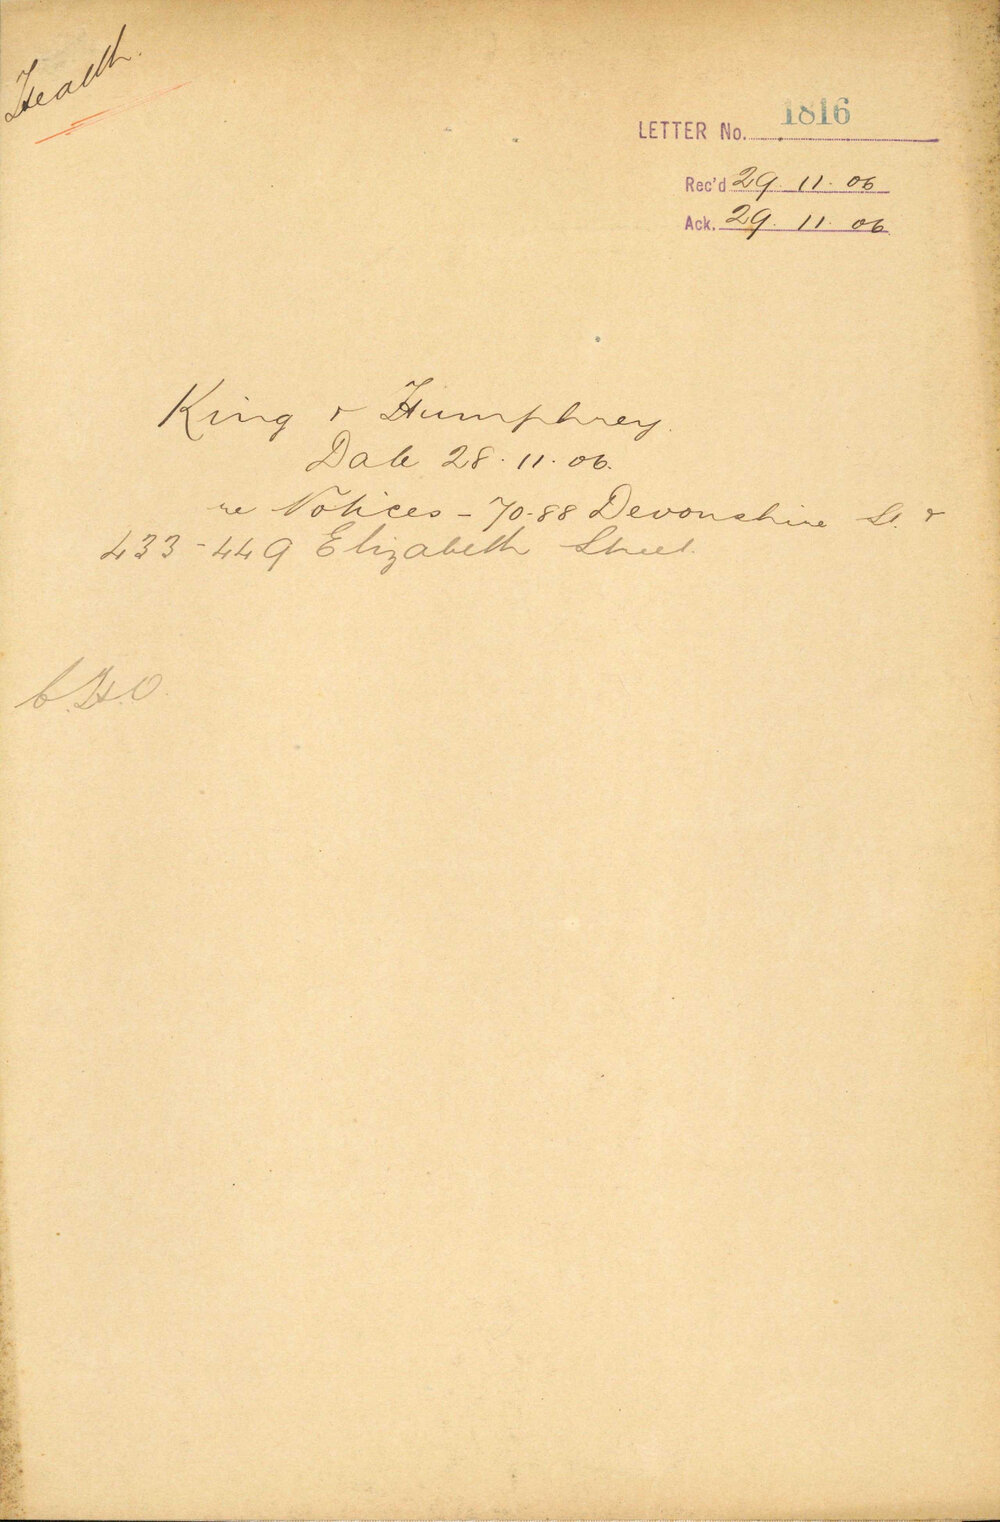 Health.
LETTER No. 1816
Rec'd 29. 11. 06
Ack. 29. 11. 06.
King & Humphrey.
Date 28. 11. 06.
re Notices - 70-88 Devonshire St. &
433-449 Elizabeth Street.
C.H.O.